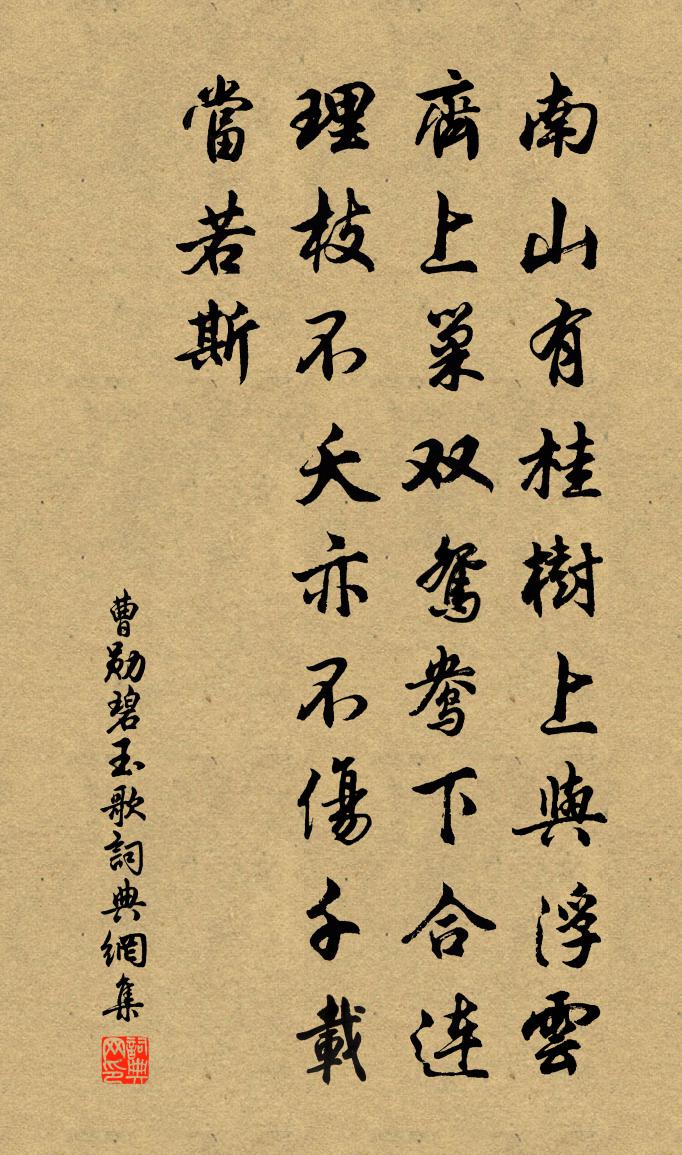 南山有桂樹上與浮雲
齊上巢双鴛鴦下合连
理枝不夭亦不傷千載
當若斯
曹勋碧玉歌詞典網集
詞典网印